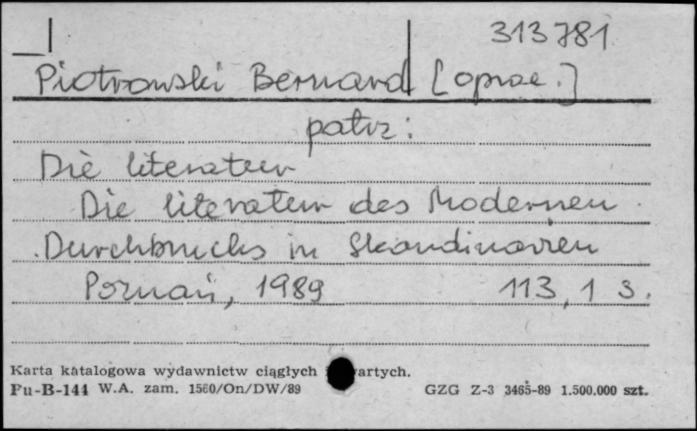 313781
Piotrowski Bernard [oprac.]
patrz:
Die literatur
Die literatur des Modernen
Durchbruchs in Skandinavien
Poznań, 1989 113, 1 s.
Karta katalogowa wydawnictw ciągłych i zwartych.
Pu-B-144 W.A. zam. 1560/On/DW/89 GZG Z-3 3465-89 1.500.000 szt.